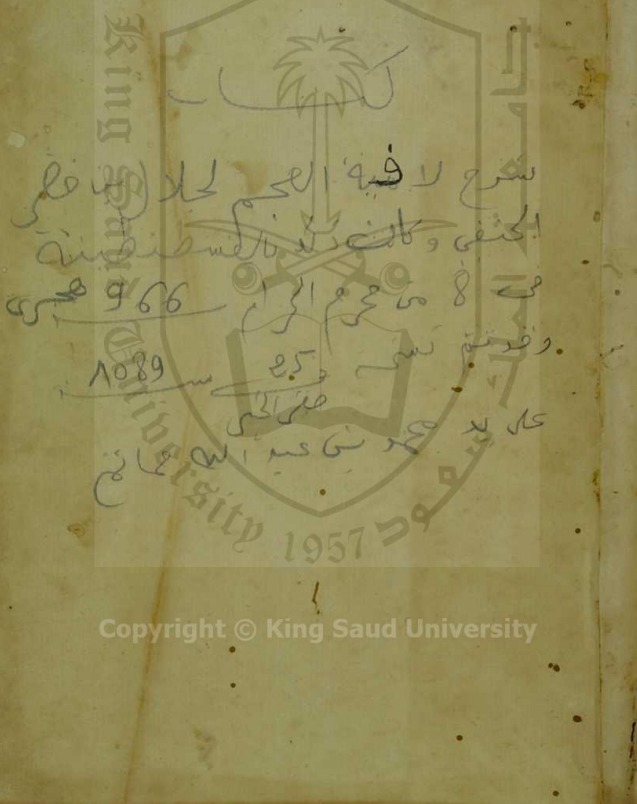 كتاب
شرح لامية العجم لجلال بن خضر
الحنفي وكان ذلك بالقسطنطينية
في 8 من محرم الحرام 966 هجرى
وقد تم نسخه 25 سـ 1089
صفر الخير
على يد محمد بن عبد الله
King Saud University
1957
Copyright © King Saud University